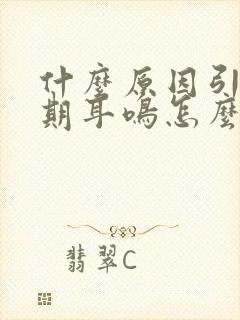 什麼原因引
期耳鳴怎麼
翡翠C